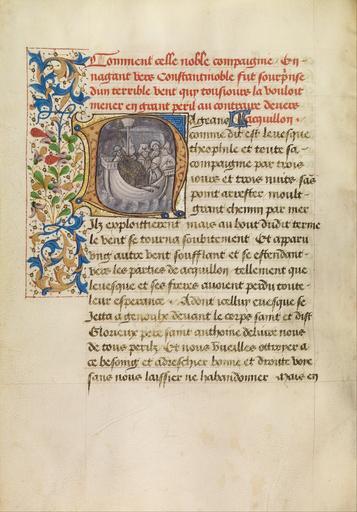 Comment celle noble compaignie En
nagant vers Constantinoble fut sourprise
dun terrible vent quy tousiours la vouloit
mener en grant peril au contraire devers
acquillon .
A grans
comme dit est levesque
theophile et toute sa
compaignie par trois
iours et trois nuits sans
point arrester moult
grant chemin par mer
Ilz exploittierent mais au bout dudit terme
le vent se tourna soubitement Et apparu
ung autre vent soufflant et se estendant
vers les parties de acquillon tellement que
levesque et ses freres avoient perdu toute
leur esperance . Adont icelluy evesque se
Jetta a genoulz devant le corps saint et dist
Glorieux pere saint anthoine delivre nous
de tous perilz Et nous vueilles ottroyer a
ce besoing et adreschier bonne et droitte voye
sans nous laissier ne habandonner Mais en